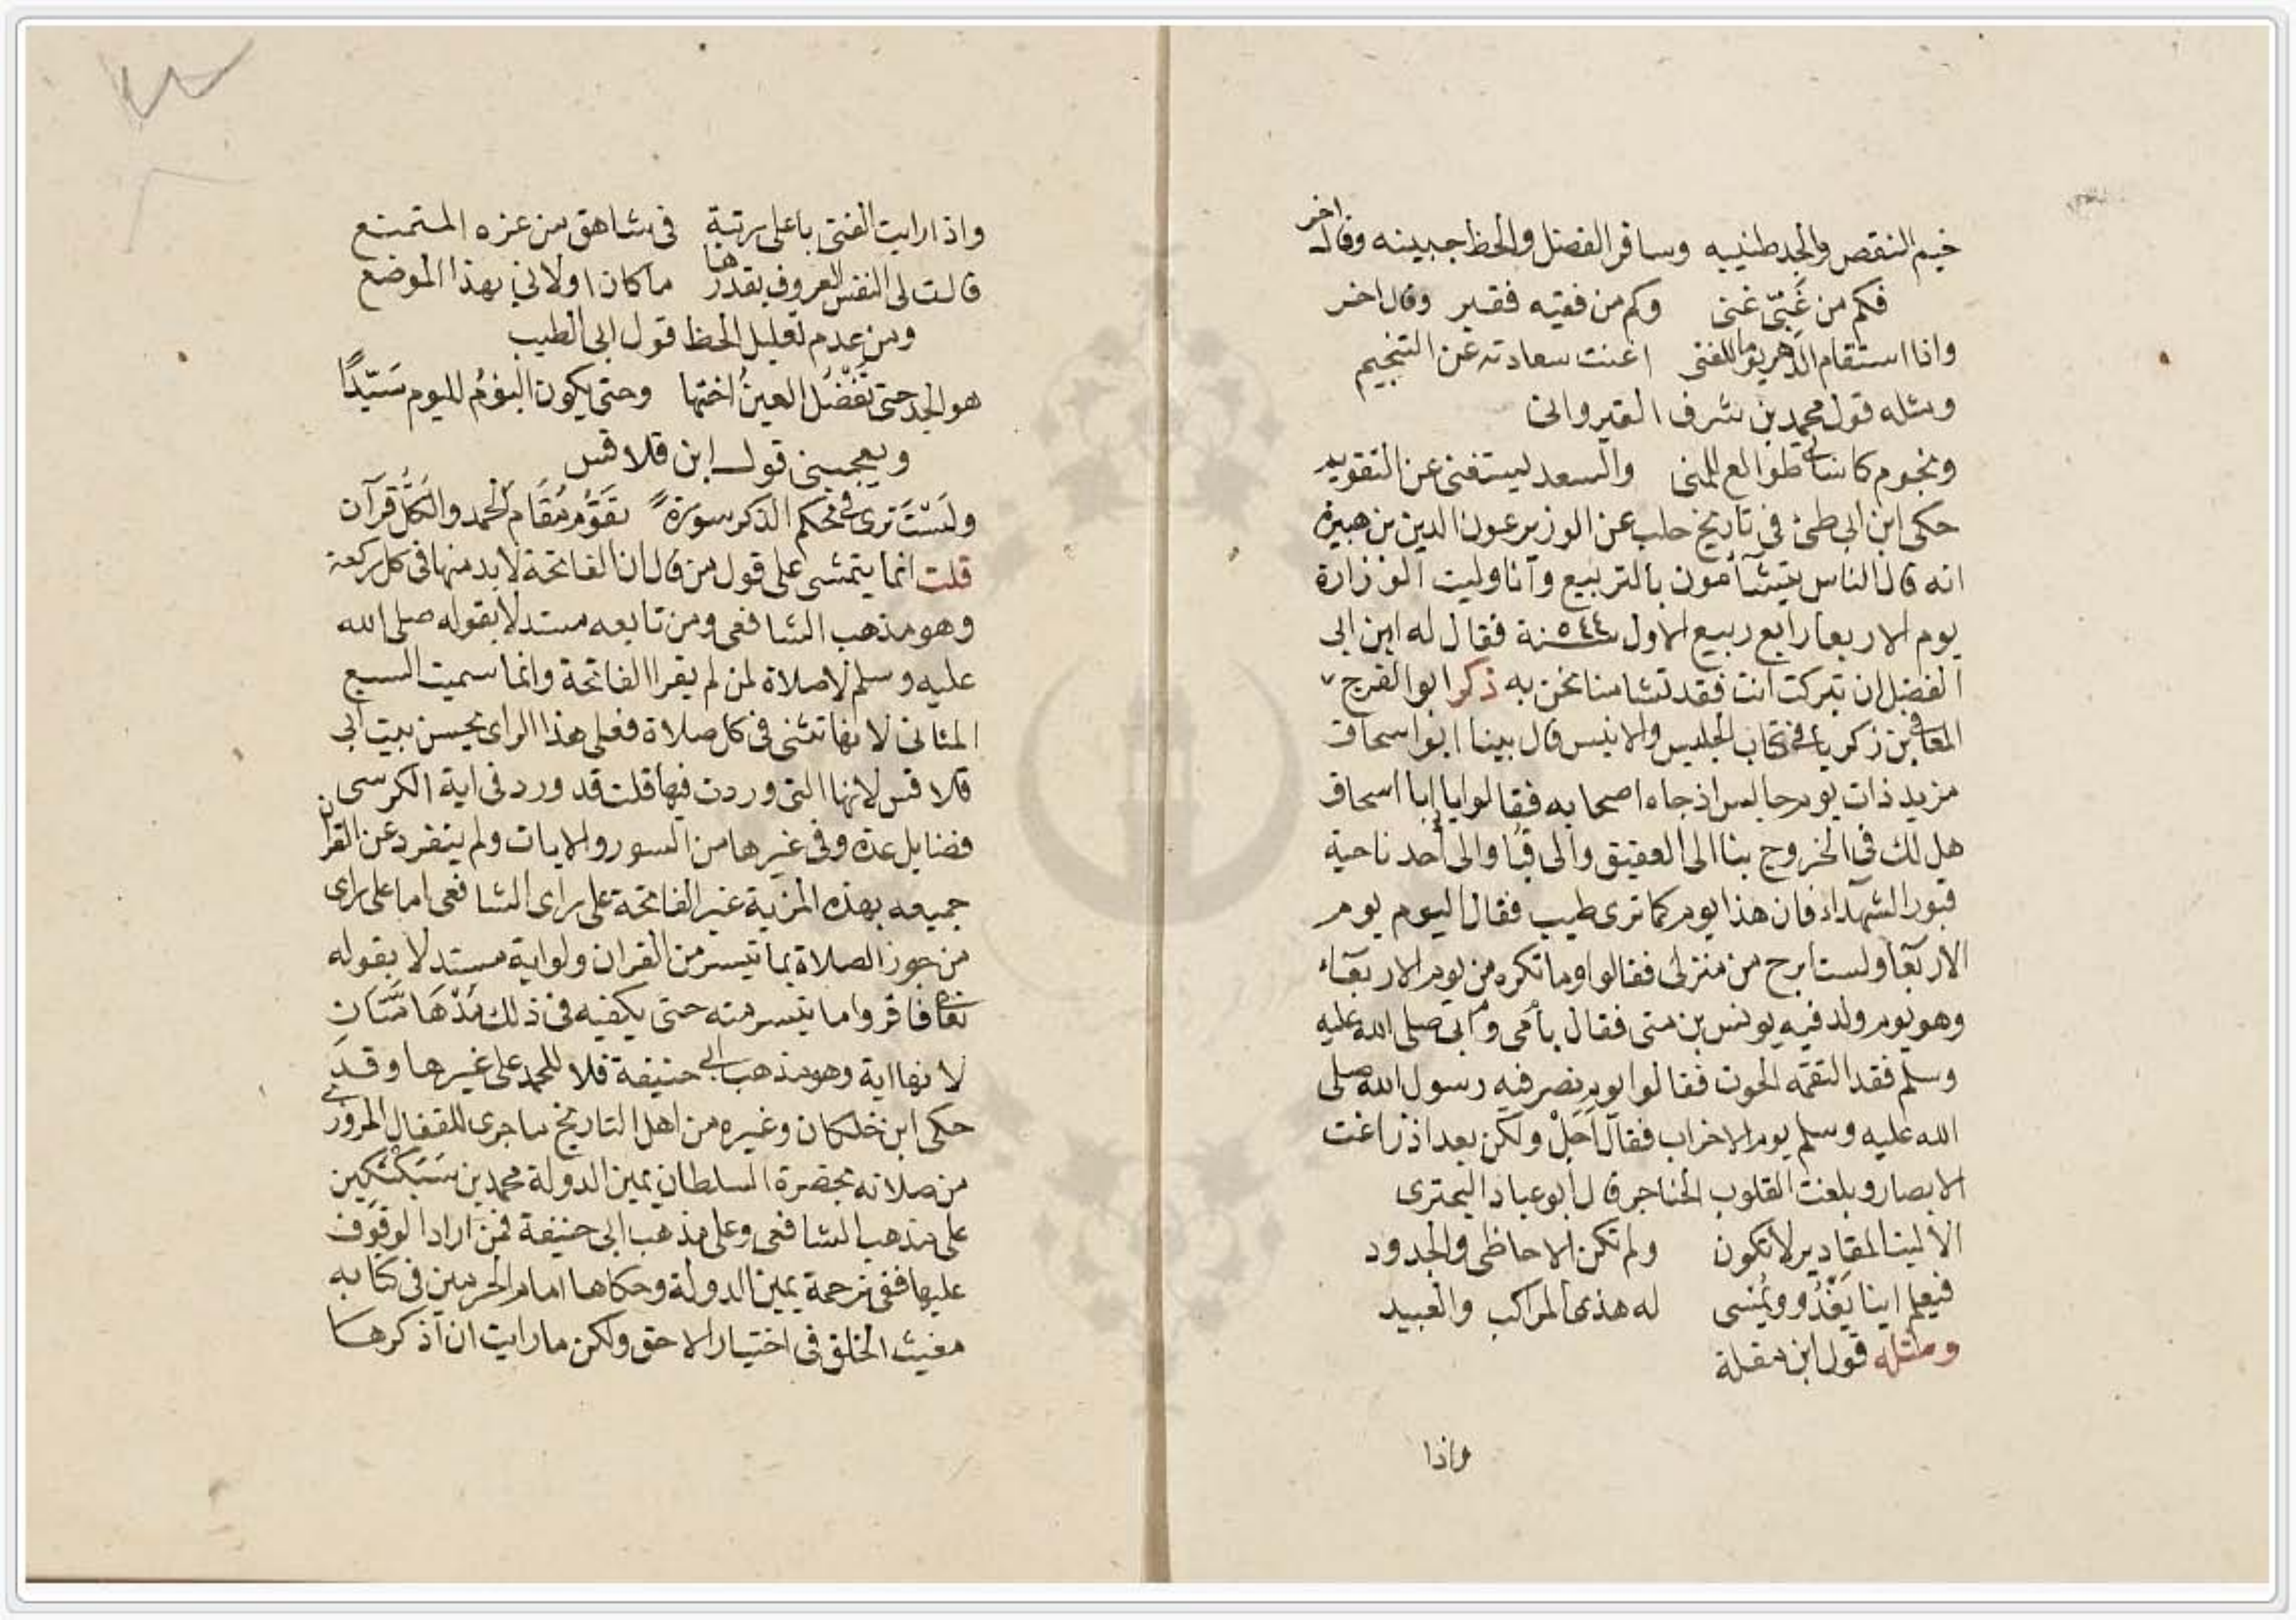 خيم النقص والجد طنيبه وسافر الفضل والحظ جبينه وقال اخر
فكم من غَبّى غنى وكم من فقيه فقير وقال اخر
واذا استقام الدهر يوما للفتى اغنت سعادته عن التنجيم
ومثله قول محمد بن شرف القيروانى
ونجوم كاساتى طوالع للمنى والسعد ليستغنى عن التقويم
حكى ابن ابى طى فى تاريخ حلب عن الوزير عون الدين بن هبيرة
انه قال الناس يتشأمون بالتربيع وأنا وليت الوزارة
يوم الاربعا رابع ربيع الاول سنة ٥٤٤ فقال له ابن ابى
الفضل ان تبركت انت فقد تشامنا نحن به ذكر ابو الفرج
المعافى بن زكريا فى كتاب الجليس والانيس قال بينا ابو اسحاق
مزيد ذات يوم جالس اذ جاه اصحابه فقالوا يا ابا اسحاق
هل لك فى الخروج بنا الى العقيق والى قبا والى أحد ناحية
قبور الشهدآء فان هذا يوم كما ترى طيب فقال اليوم يوم
الاربعآ ولست ابرح من منزلى فقالوا وما تكره من يوم الاربعآء
وهو يوم ولد فيه يونس بن متى فقال بأمى وأبى صلى الله عليه
وسلم فقد التقمه الحوت فقالوا يوم نصر فيه رسول الله صلى
الله عليه وسلم يوم الاحزاب فقال أَجَلْ ولكن بعد اذ زاغت
الابصار وبلغت القلوب الحناجر قال ابو عباد البحترى
الا ليت المقادير لا تكون ولم تكن الاحاظى والجدود
فيعلم اينا يَغْدُو ويُمْسى له هذى المراكب والعبيد
ومثله قول ابن مقلة
واذا
واذا رايت الفتى باعلى رتبة فى شاهق من عزه المتمنع
قالت لى النفس العروف بقدرها ما كان اولانى بهذا الموضع
ومن عدم تعليل الحظ قول ابى الطيب
هو الجد حتى تَفْضُل العينُ اختها وحتى يكون اليومُ لليوم سَيّدًا
ويعجبنى قول ابن قلاقس
ولَسْتَ ترى فى محكم الذكر سورةً تقَوُم مُقَام الحمد والكُلُّ قرآن
قلت انما يتمشى على قول من قال ان الفاتحة لا بد منها فى كل ركعة
وهو مذهب الشافعى ومن تابعه مستدلا بقوله صلى الله
عليه وسلم لا صلاة لمن لم يقرا الفاتحة وانما سميت السبع
المثانى لانها تثنى فى كل صلاة فعلى هذا الراى يحسن بيت ابى
قلاقس لانها التى وردت فيها قلت قد ورد فى اية الكرسى
فضايل عدة وفى غيرها من السور والايات ولم ينفرد عن القران
جميعه بهذه المزية غير الفاتحة على راى الشافعى اما على راى
من جوز الصلاة بما تيسر من القران ولو اية مستدلا بقوله
تعالى فاقروا ما تيسر منه حتى يكفيه فى ذلك مُدْهَامَّتَانِ
لانها اية وهو مذهب ابى حنيفة فلا للحمد على غيرها وقد
حكى ابن خلكان وغيره من اهل التاريخ ما جرى للقفال المروزى
من صلاته بحضرة السلطان يمين الدولة محمد بن سَبَكْتكين
على مذهب الشافعى وعلى مذهب ابى حنيفة فمن اراد الوقوف
عليها ففى ترجمة يمين الدولة وحكاها امام الحرمين فى كتابه
مغيث الخلق فى اختيار الاحق ولكن ما رايت ان أذكرها